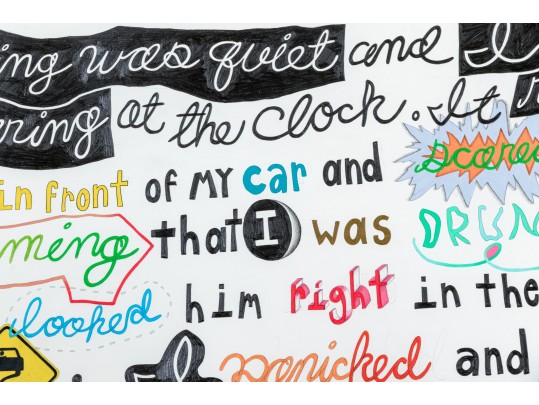 ing was quiet and I
ering at the clock. It
scared
in front of MY car and
ming that I was DRUN
looked him right in the
I panicked and